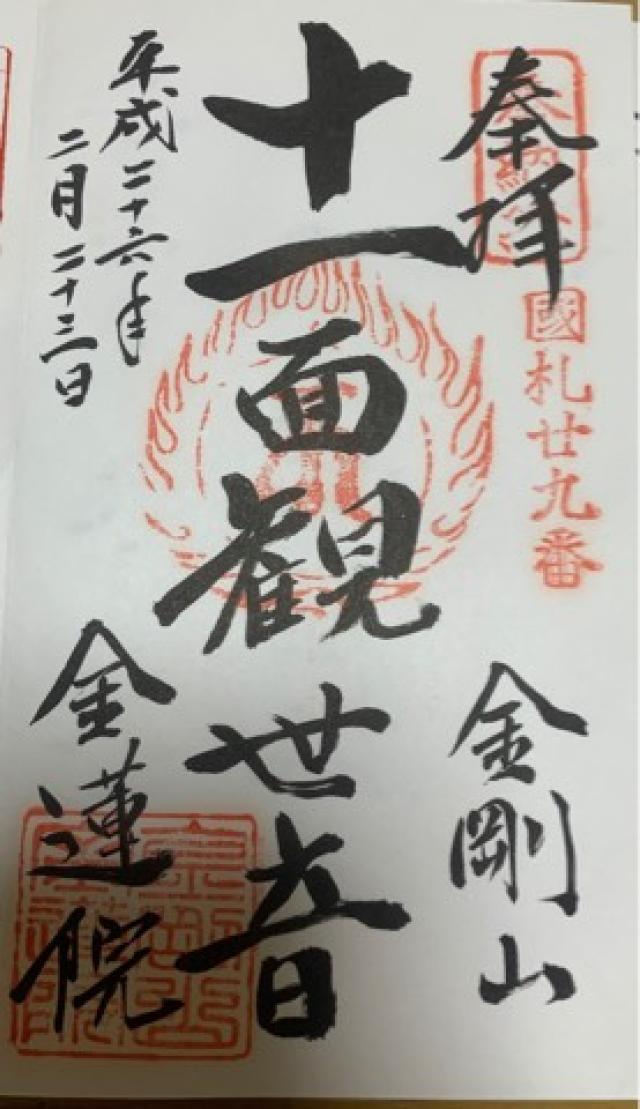 奉拝
國札廿九番
金剛山
十一面観世音
平成二十六年
二月二十三日
金蓮院